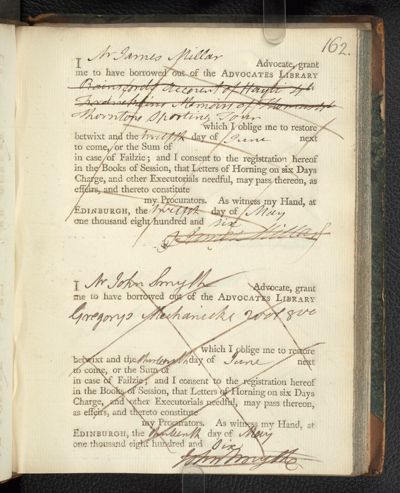 162.
I Mr James Millar Advocate, grant
me to have borrowed out of the ADVOCATES LIBRARY
Rainsford's Account of Hayti 4to
Memoirs of
Thorntons Sporting Tour
which I oblige me to restore
betwixt and the twelfth day of June next
to come, or the Sum of
in case of Failzie; and I consent to the registration hereof
in the Books of Session, that Letters of Horning on six Days
Charge, and other Executorials needful, may pass thereon, as
effeirs, and thereto constitute
my Procurators. As witness my Hand, at
EDINBURGH, the twelfth day of May
one thousand eight hundred and six
James Millar
I Mr John Smyth Advocate, grant
me to have borrowed out of the ADVOCATES LIBRARY
Gregory's Mechanicks 2 vol 8vo
which I oblige me to restore
betwixt and the thirteenth day of June next
to come, or the Sum of
in case of Failzie; and I consent to the registration hereof
in the Books of Session, that Letters of Horning on six Days
Charge, and other Executorials needful, may pass thereon,
as effeirs, and thereto constitute
my Procurators. As witness my Hand, at
EDINBURGH, the thirteenth day of May
one thousand eight hundred and six
John Smyth